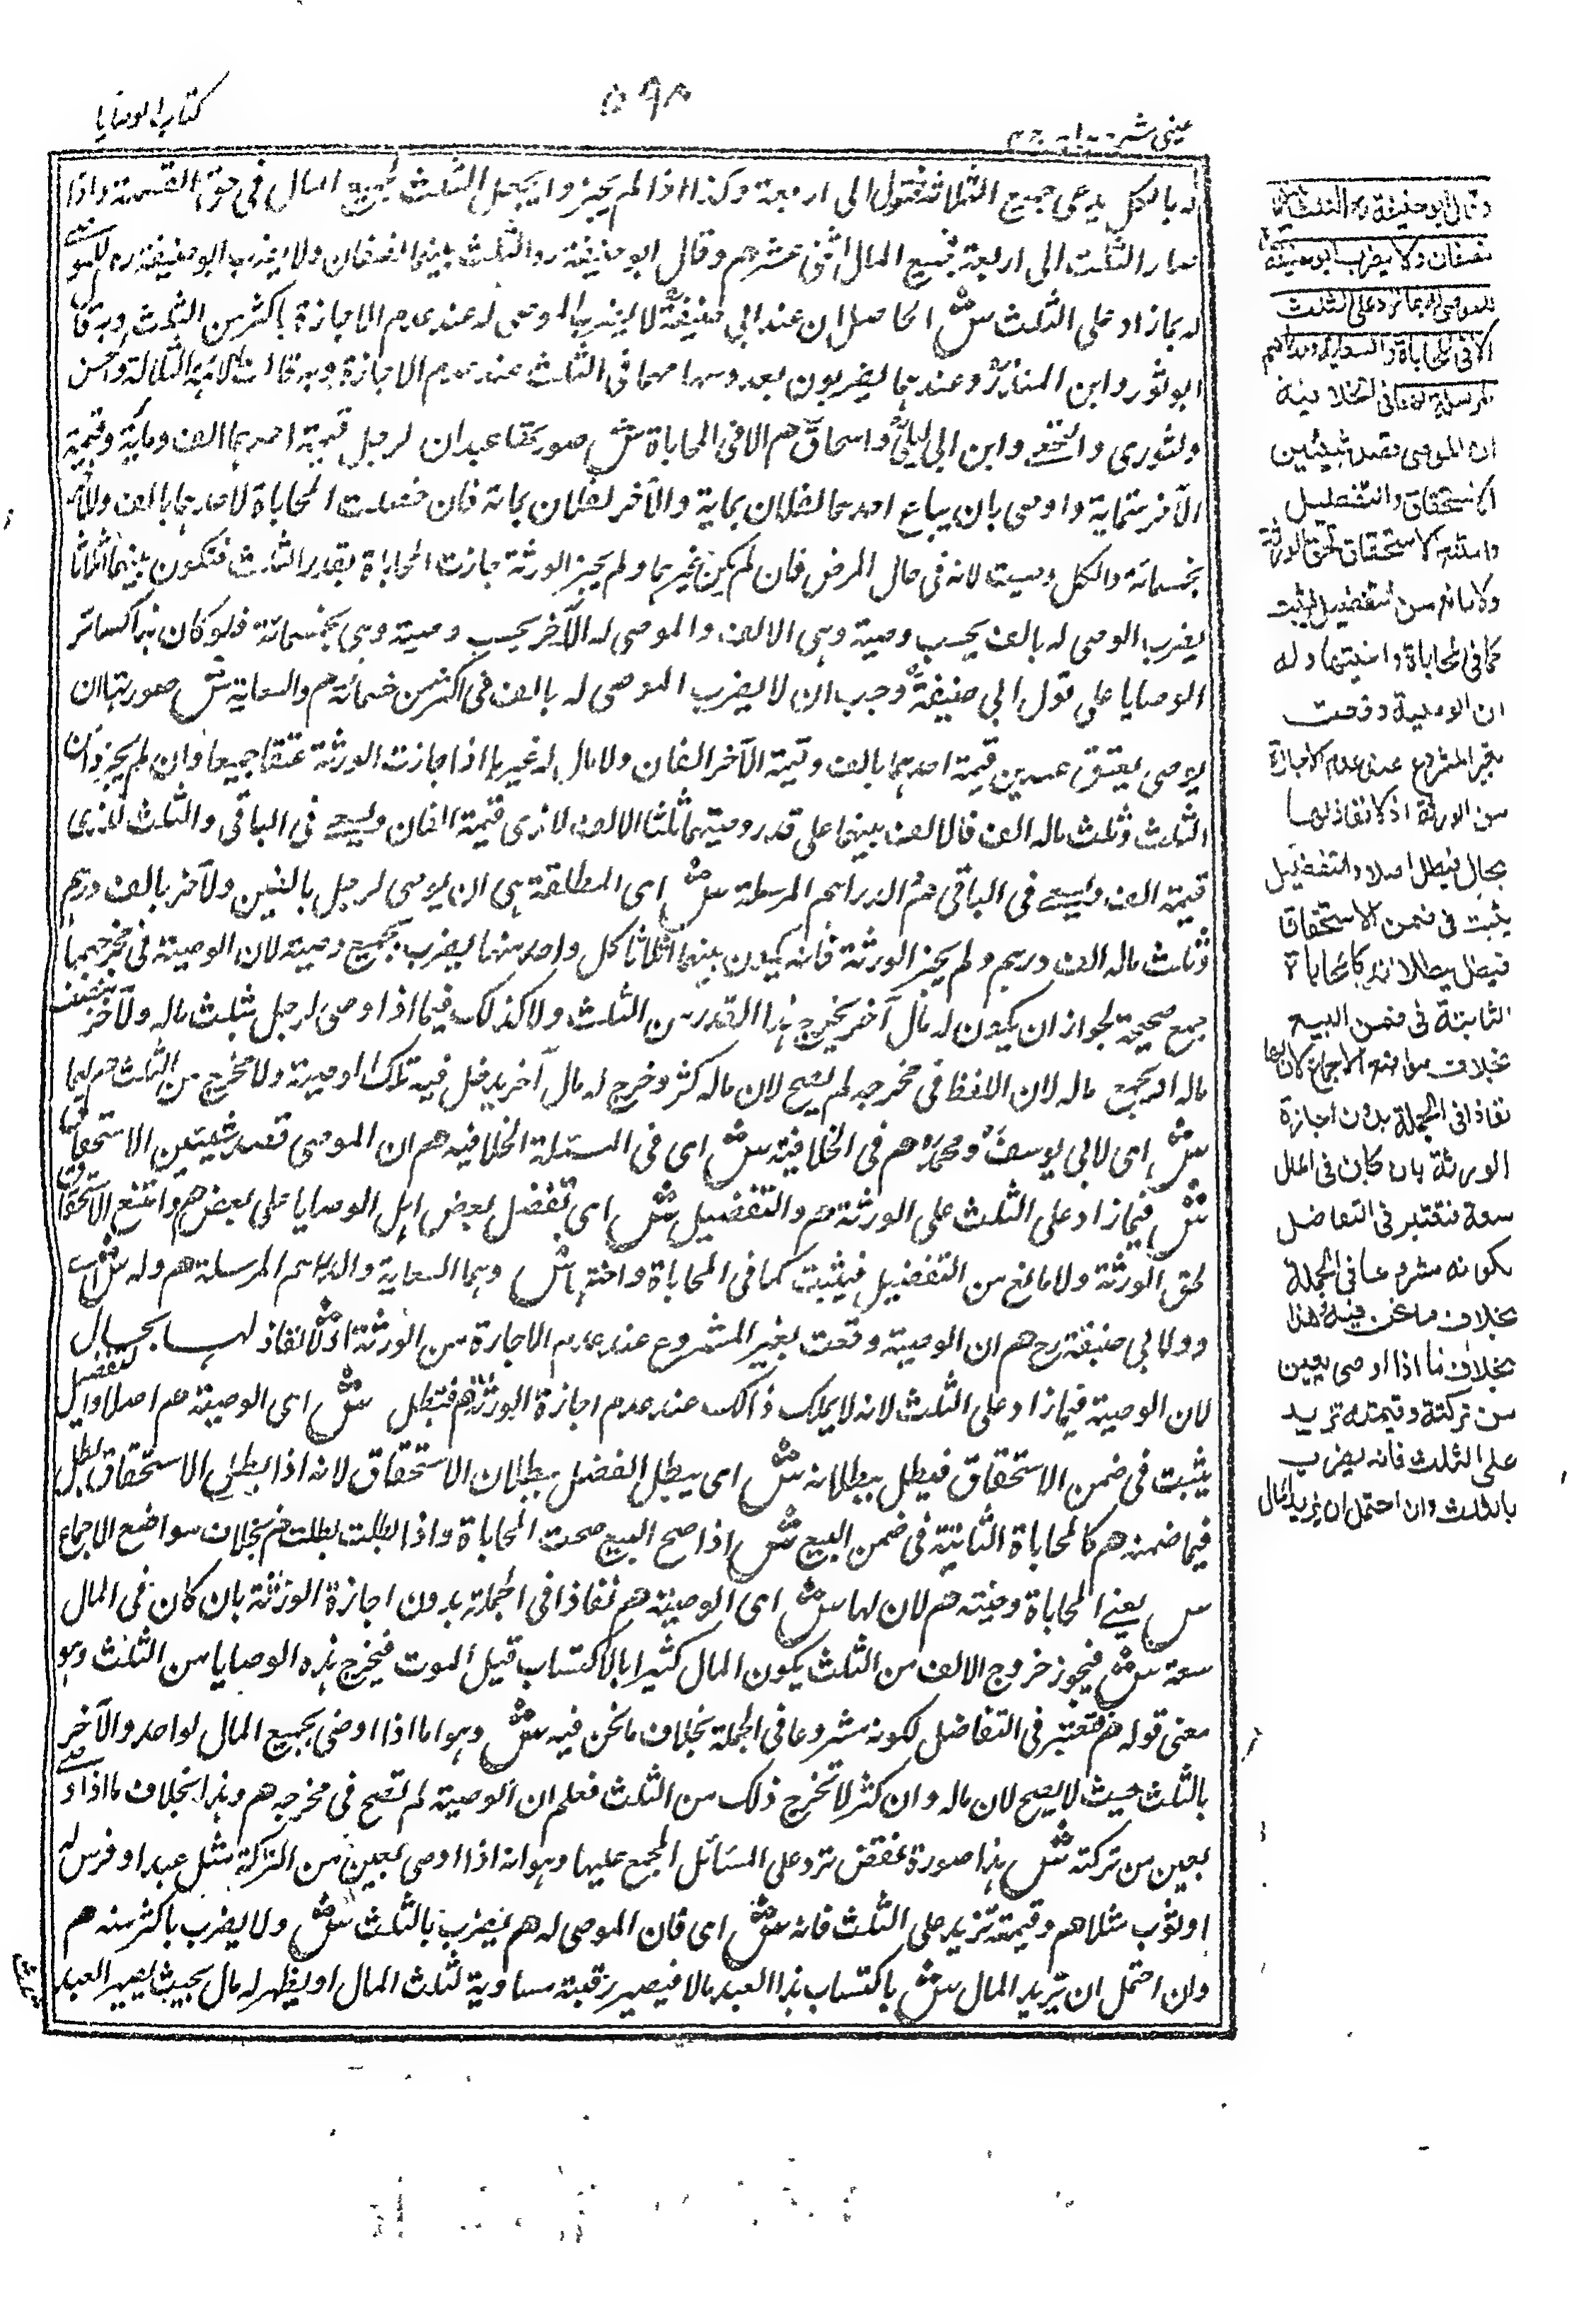 كتاب الوصايا
٥٩٨
عينى شرح هدايه ج ٤
له بالكل يدعى جميع الثلاثة فتقول الى اربعة وكذا اذا لم يجيزوا يجعل الثلث كجميع المال فى حق القسمة واذا
صار الثلث الى اربعة فجميع المال اثنى عشر هم وقال ابو حنيفة رد الثلث بينهما نصفان ولا يضرب ابو حنيفة رح للموصى
له بما زاد على الثلث ش الحاصل ان عند ابى حنيفة لا يضرب الموصى له عند عدم الاجازة باكثر من الثلث وبه قال
ابو ثور وابن المنذر وعندهما يضربون بعدد سهامهما فى الثلث عند عدم الاجازة وبه قالت الائمة الثلاثة والحسن
والثورى والنخعى وابن ابى ليلى واسحاق هم الا فى المحاباة ش صورتها عبدان لرجل قيمة احدهما الف ومائة وقيمة
الآخر ستماية واوصى بان يباع احدهما لفلان بماية والآخر لفلان بمائة فان حصلت المحاباة لاحدهما بالف وللآخر
بخمسمائة والكل وصيت لانه فى حال المرض فان لم يكن غيرهما ولم يجيز الورثة جازت المحاباة بقدر الثلث فتكون بينهما اثلاثا
يضرب الموصى له بالف بحسب وصيته وهى الالف والموصى له الآخر بحسب وصيته وهى خمسمائة فلو كان هذا كسائر
الوصايا على قول ابى حنيفة وجب ان لا يضرب الموصى له بالف فى اكثر من خمسمائة هم والسعاية ش صورتها ان
يوصى بعتق عبدين قيمة احدهما بالف وقيمة الآخر الفان ولا مال له غيرهما اذا جازت الورثة عتقا جميعا وان لم يجيزوا من
الثلث وثلث ماله الف فالالف بينهما على قدر وصيتهما ثلثا الالف للذى قيمته الفان ويسعى فى الباقى والثلث للذى
قيمة الف ويسعى فى الباقى هم الدراهم المرسلة ش اى المطلقة هى ان يوصى لرجل بالفين ولآخر بالف درهم
وثلث ماله الف درهم ولم يجيز الورثة فانه يكون بينهما اثلاثا كل واحد منهما يضرب بجميع وصيته لان الوصية فى مخرجها
جمع صحيحة لجواز ان يكون له مال آخر يخرج هذا القدر من الثلث ولا كذلك فيما اذا اوصى لرجل بثلث ماله ولآخر بنصف
ماله او بجميع ماله لان اللفظ فى مخرجه لم يصح لان ماله كثر وخرج له مال آخر يدخل فيه تلك الوصية ولا يخرج من الثلث هم لهما
ش اى لابى يوسف ومحمد هم فى الخلافية ش اى فى المسئلة الخلافية هم ان الموصى قصد شيئين الاستحقاق
ش فيما زاد على الثلث على الورثة هم والتفضيل ش اى تفضل بعض اهل الوصايا على بعض هم وامتنع الاستحقاق
لحق الورثة ولا مانع من التفضيل فيثبت كما فى المحاباة واختيها ش وهما السعاية والدراهم المرسلة هم وله ش اى
ولابى حنيفة رح هم ان الوصية وقعت بغير المشروع عند عدم الاجازة من الورثة اذ لا نفاذ لها بحال
لان الوصية فيما زاد على الثلث لانه لا يملك ذالك عند عدم اجازة الورثة هم فتبطل ش اى الوصية هم اصلا والتفضيل
يثبت فى ضمن الاستحقاق فبطل ببطلانه ش اى يبطل الفضل ببطلان الاستحقاق لانه اذا بطل الاستحقاق بطل
فيما ضمنه هم كالمحاباة الثابتة فى ضمن البيع ش اذا صح البيع صحت المحاباة واذا بطلت بطلت هم بخلاف مواضع الاجماع
ش يعنى المحاباة واختيه هم لان لها ش اى الوصية هم نفاذا فى الجملة بدون اجازة الورثة بان كان فى المال
سعة ش فيجوز خروج الالف من الثلث يكون المال كثيرا بالاكتساب قبل الموت فيخرج هذه الوصايا من الثلث وهو
معنى قوله هم فتعتبر فى التفاضل لكونه مشروعا فى الجملة بخلاف ما نحن فيه ش وهو ما اذا اوصى بجميع المال لواحد والآخر
بالثلث حيث لا يصح لان ماله وان كثر لا تخرج ذلك من الثلث فعلم ان الوصية لم تصح فى مخرجه هم وهذا بخلاف ما اذا اوصى
بعين من تركته ش هذا صورة نقض ترد على المسائل المجمع عليها وهو انه اذا اوصى بعين من التركة مثل عبد او فرس له
او ثوب مثلا هم وقيمته تزيد على الثلث فانه ش اى فان الموصى له هم يضرب بالثلث ش ولا يضرب باكثر منه هم
وان احتمل ان يزيد المال ش باكتساب هذا العبد مالا فيصير رقبته مساوية لثلث المال او يظهر له مال بحيث يصير العبد
وقال ابو حنيفة رح الثلث بينهما
نصفان ولا يضرب ابو حنيفة
للموصى له بما زاد على الثلث
الا فى المحاباة والسعاية والدراهم
المرسلة لهما فى الخلافية
ان الموصى قصد شيئين
الاستحقاق والتفضيل
وامتنع الاستحقاق لحق الورثة
ولا مانع من التفضيل فيثبت
كما فى المحاباة واختيها وله
ان الوصية وقعت
بغير المشروع عند عدم الاجازة
من الورثة اذ لا نفاذ لها
بحال فيبطل اصلا والتفضيل
يثبت فى ضمن الاستحقاق
فبطل ببطلانه كالمحاباة
الثابتة فى ضمن البيع
بخلاف مواضع الاجماع لان لها
نفاذا فى الجملة بدون اجازة
الورثة بان كان فى المال
سعة فتعتبر فى التفاضل
لكونه مشروعا فى الجملة
بخلاف ما نحن فيه وهذا
بخلاف ما اذا اوصى بعين
من تركته وقيمته تزيد
على الثلث فانه يضرب
بالثلث وان احتمل ان يزيد المال